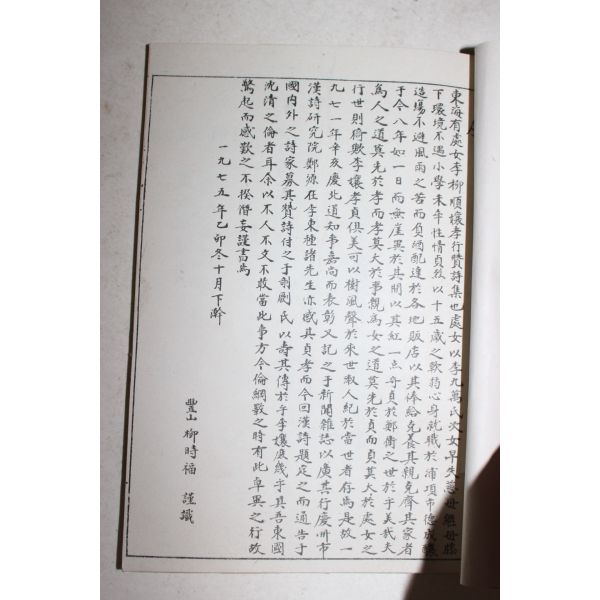 東海有處女李柳順孃孝行贊詩集也處女以李九萬氏次女早失慈母繼母膝
下環境不遇小學未卒性情貞烈以十五歲之軟弱心身就職於浦項市德成釀
造場不避風雨之苦而負酒配達於各地販店以其俸給克養其親克齊其家者
于今八年如一日而無崖異於其間以其紅一点奇貞於鄭衛之世於乎美哉夫
爲人之道莫先於孝而孝莫大於事親爲女之道莫先於貞而貞莫大於處女之
行世則猗歟李孃孝貞俱美可以樹風聲於來世叙人紀於當世者存焉是故一
九七一年辛亥慶北道知事嘉尚而表彰又記之于新聞雜誌以廣其行慶州市
漢詩研究院鄭源在李東種諸先生亦感其貞孝而今回漢詩題定之而通告于
國內外之詩家募其贊詩付之于剞劂氏以壽其傳於乎李孃庶幾乎其吾東國
沈清之倫者耳余以不人不文不敢當此事方今倫綱斁之時有此卓異之行故
驚起而感歎之不揆僭妄謹書焉
一九七五年乙卯冬十月下澣
豐山 柳時福 謹識